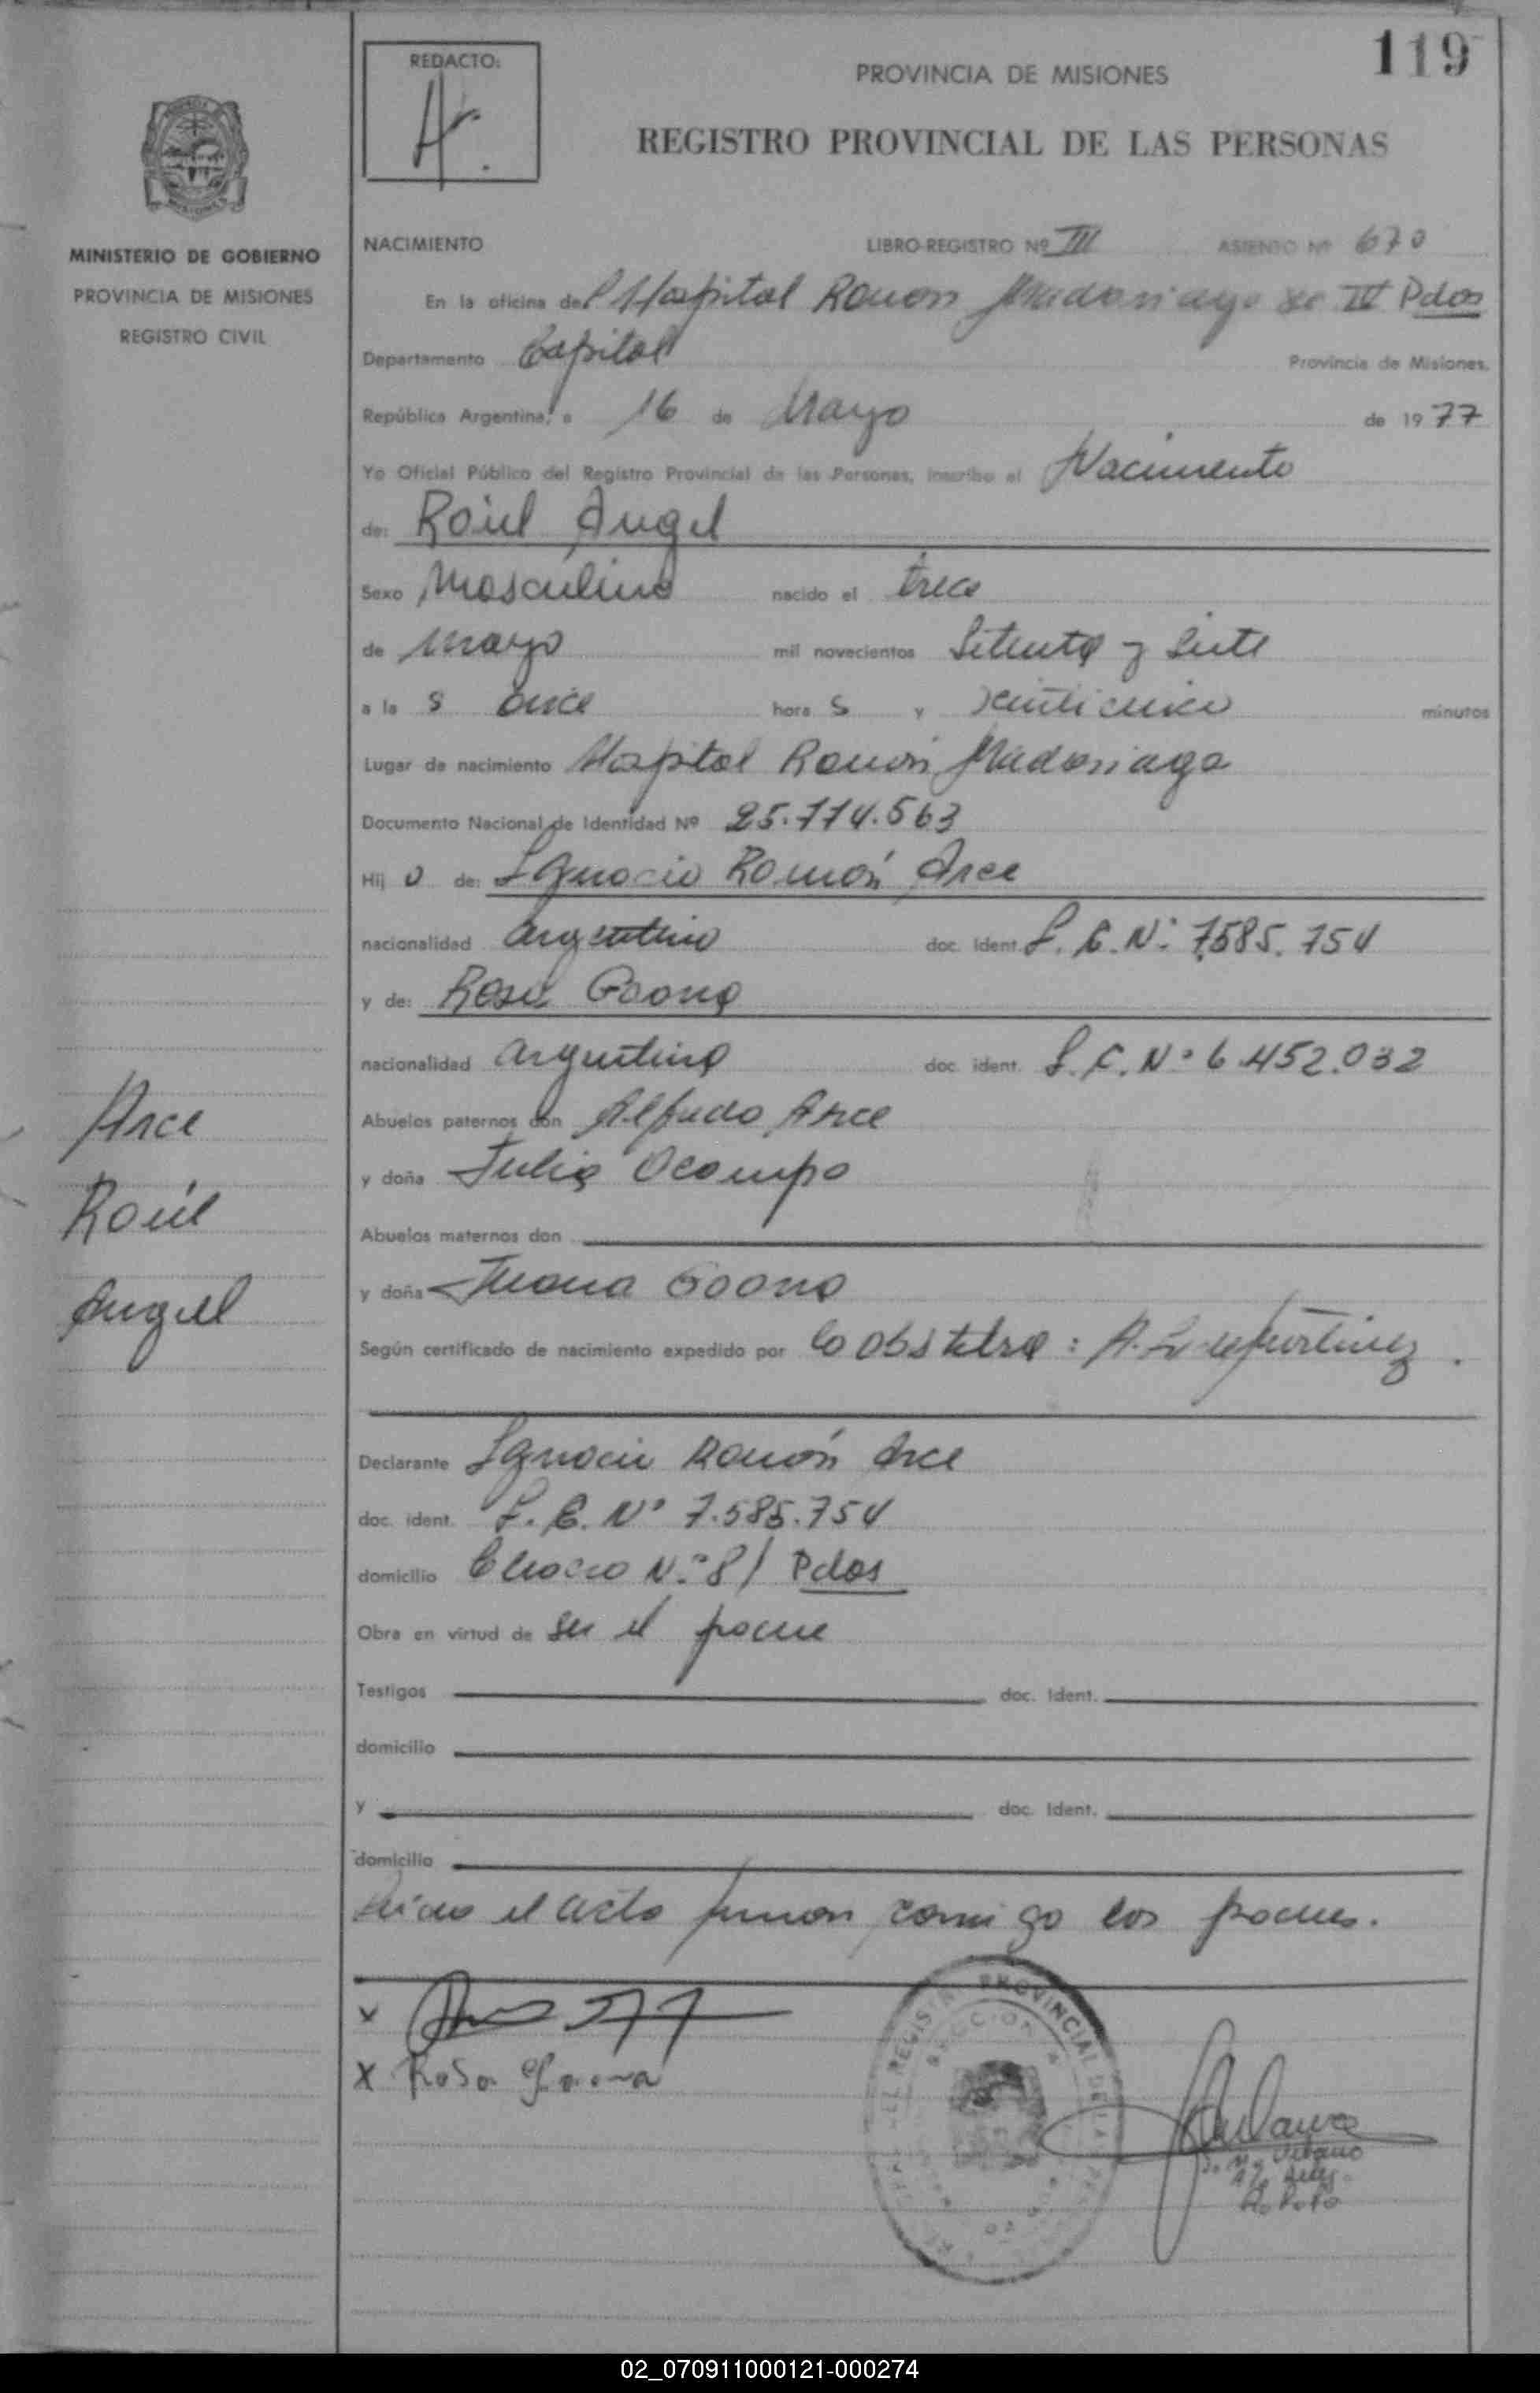 119
REDACTO:
PROVINCIA DE MISIONES
REGISTRO PROVINCIAL DE LAS PERSONAS
MINISTERIO DE GOBIERNO
PROVINCIA DE MISIONES
REGISTRO CIVIL
NACIMIENTO LIBRO-REGISTRO Nº III ASIENTO Nº 670
En la oficina del Hospital Ramón Madariaga Pdas
Departamento Capital Provincia de Misiones,
República Argentina, a 16 de Mayo de 1977
Yo Oficial Público del Registro Provincial de las Personas, inscribo el Nacimiento
de: Raúl Angel
Sexo Masculino nacido el trece
de Mayo mil novecientos Setenta y Siete
a la s once hora s y minutos
Lugar de nacimiento Hospital Ramón Madariaga
Documento Nacional de Identidad Nº 25.774.563
Hij o de: Ignacio Ramón Arce
nacionalidad argentino doc. Ident. L. E. Nº 7.585.754
y de: Rosa Gaona
nacionalidad argentina doc. ident. L.C. Nº 6.452.032
Abuelos paternos don Alfredo Arce
y doña Julia Ocampo
Abuelos maternos don
y doña Juana Gaona
Según certificado de nacimiento expedido por la obstetra:
Arce
Raúl
Angel
Declarante Ignacio Ramón Arce
doc. ident. L. E. Nº 7.585.754
domicilio Chacra N.º 81 Pdas
Obra en virtud de ser el padre
Testigos doc. Ident.
domicilio
y doc. Ident.
domicilio
el acta firman conmigo los padres.
x
x Rosa Gaona
REGISTRO PROVINCIAL DE LAS
02_070911000121-000274